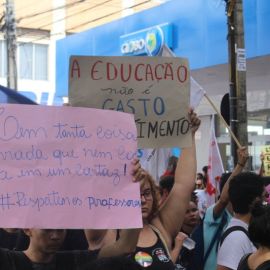 A EDUCAÇÃO
não é
GASTO
Com tanta coisa
errada que nem cabe
em um cartaz!
#Respeitem os professores